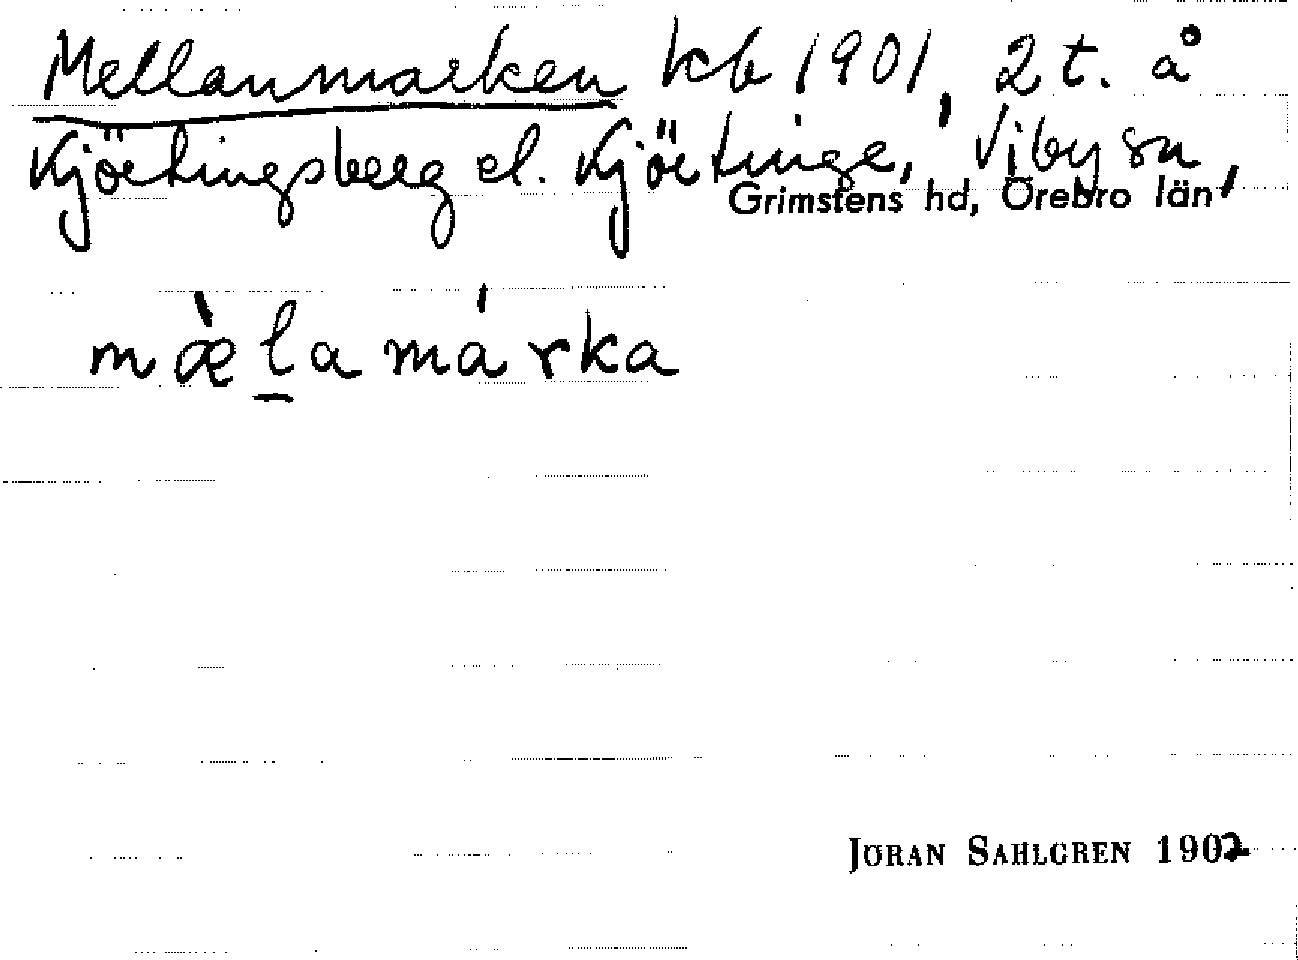 Mellanmarken kb 1901, 2 t. å
Kjörtingsberg el. Kjörtinge, Viby sn,
Grimstens hd, Örebro län
mæ̀l̠amárka
JÖRAN SAHLGREN 1902